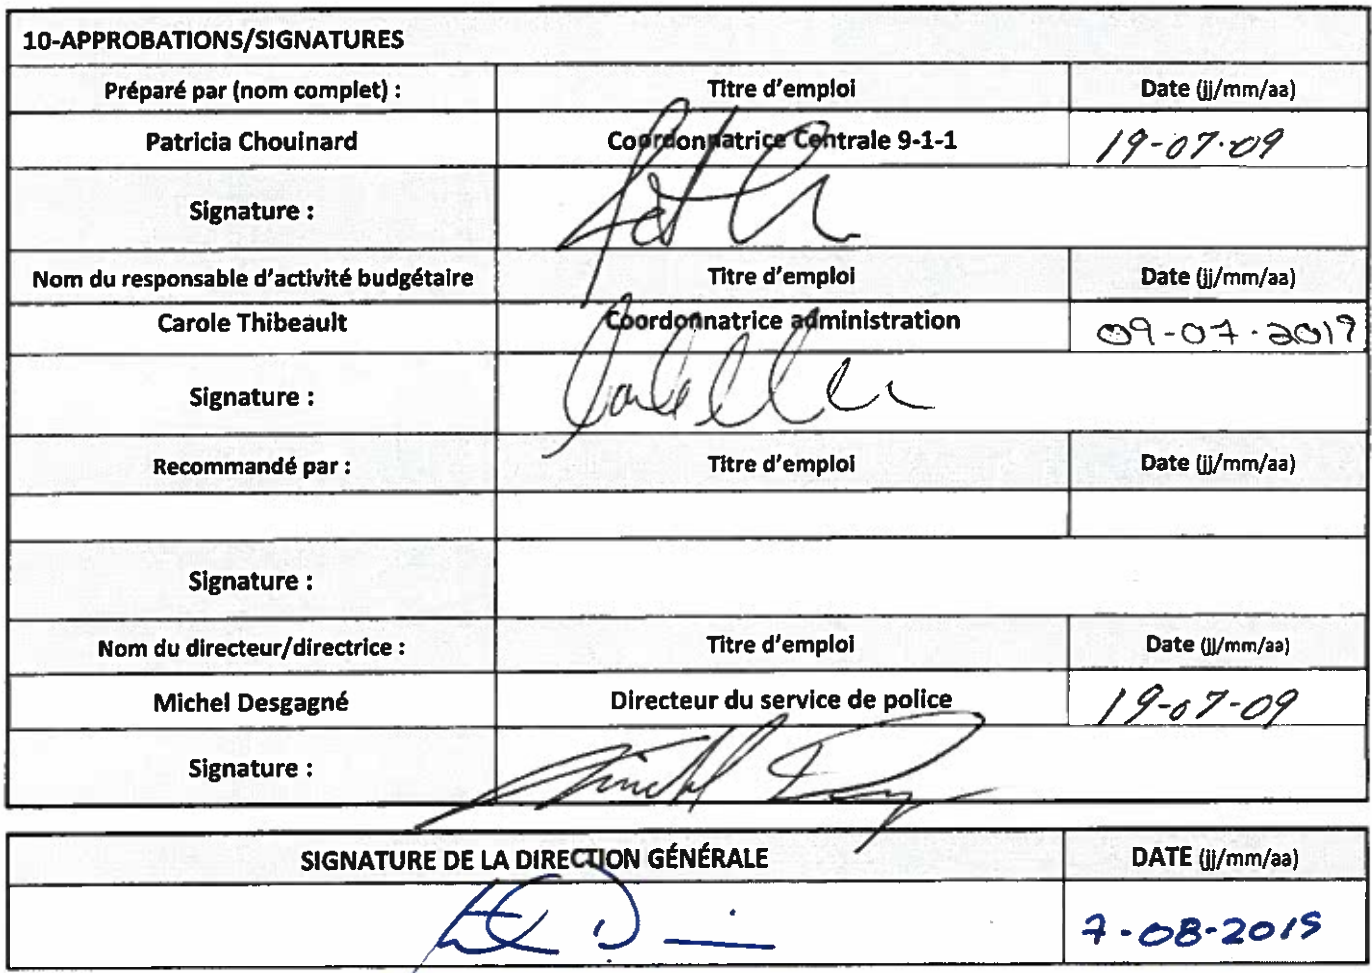 10-APPROBATIONS/SIGNATURES
Préparé par (nom complet) : Titre d'emploi Date (jj/mm/aa)
Patricia Chouinard Coordonnatrice Centrale 9-1-1 19-07-09
Signature :
Nom du responsable d'activité budgétaire Titre d'emploi Date (jj/mm/aa)
Carole Thibeault Coordonnatrice administration 09-07-2019
Signature :
Recommandé par : Titre d'emploi Date (jj/mm/aa)
Signature :
Nom du directeur/directrice : Titre d'emploi Date (jj/mm/aa)
Michel Desgagné Directeur du service de police 19-07-09
Signature :
SIGNATURE DE LA DIRECTION GÉNÉRALE DATE (jj/mm/aa)